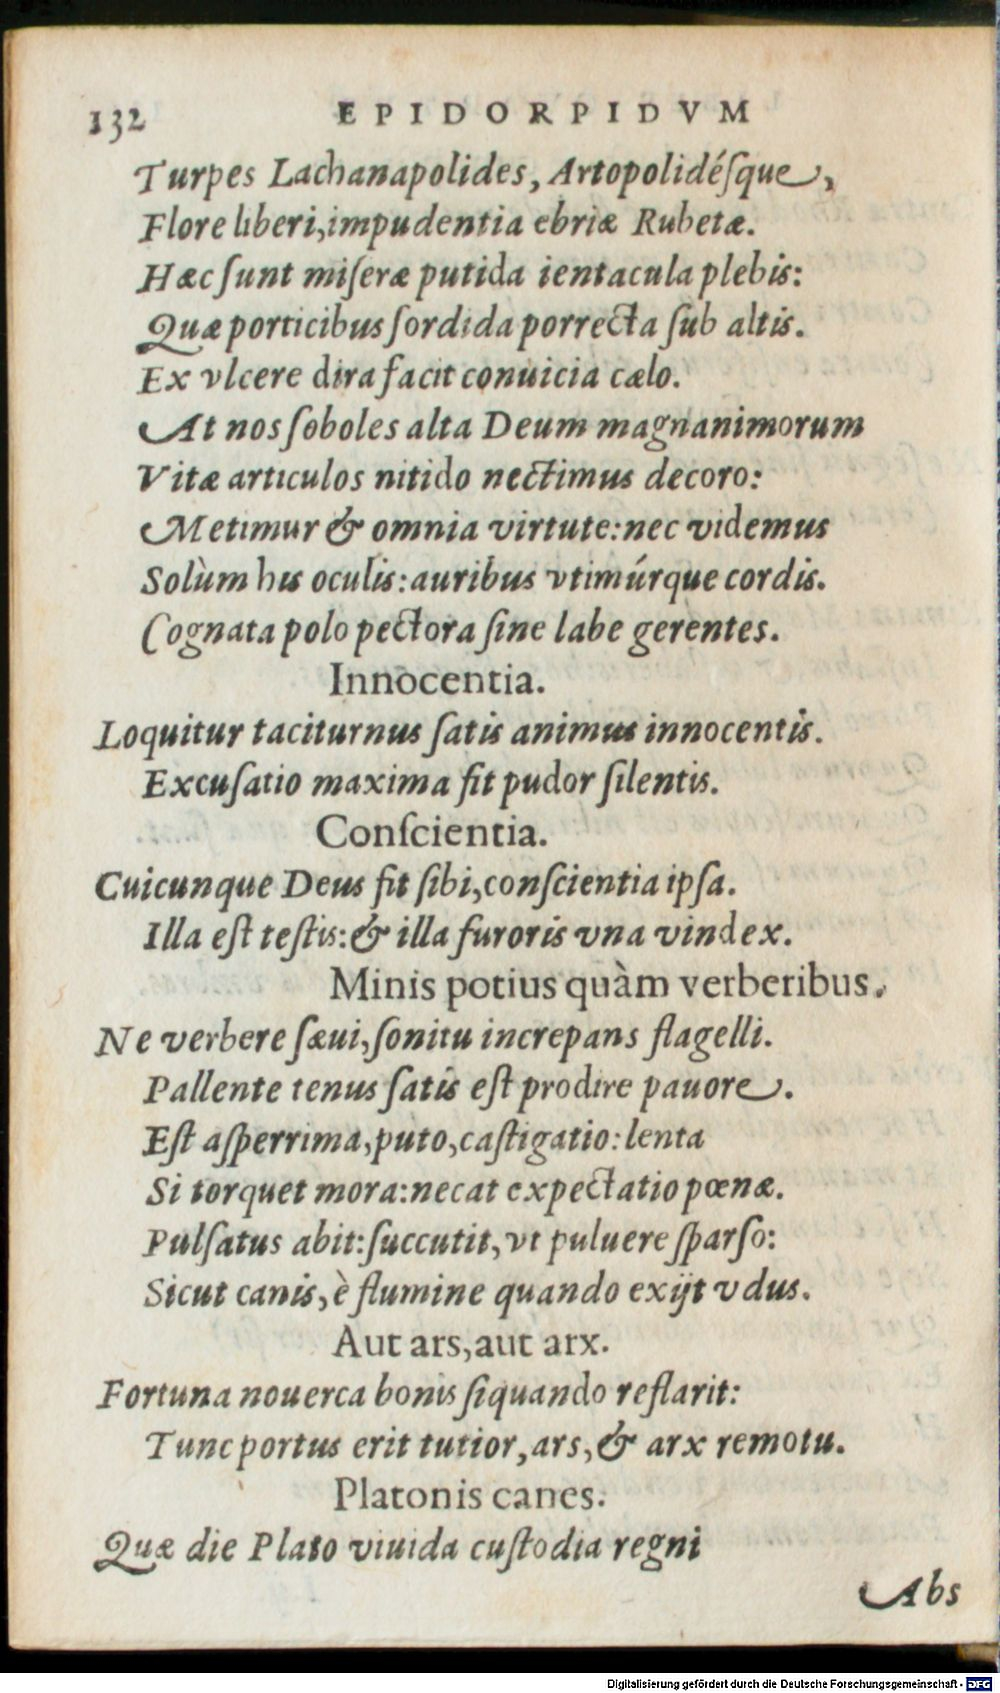 132 EPIDORPIDVM
Turpes Lachanapolides, Artopolidésque,
Flore liberi, impudentia ebriæ Rubetæ.
Hæc sunt miseræ putida ientacula plebis:
Quæ porticibus sordida porrecta sub altis.
Ex vlcere dira facit conuicia cælo.
At nos soboles alta Deum magnanimorum
Vitæ articulos nitido nectimus decoro:
Metimur & omnia virtute: nec videmus
Solùm his oculis: auribus vtimúrque cordis.
Cognata polo pectora sine labe gerentes.
Innocentia.
Loquitur taciturnus satis animus innocentis.
Excusatio maxima fit pudor silentis.
Conscientia.
Cuicunque Deus fit sibi, conscientia ipsa.
Illa est testis: & illa furoris vna vindex.
Minis potius quàm verberibus.
Ne verbere sæui, sonitu increpans flagelli.
Pallente tenus satis est prodire pauore.
Est asperrima, puto, castigatio: lenta
Si torquet mora: necat expectatio pœnæ.
Pulsatus abit: succutit, vt puluere sparso:
Sicut canis, è flumine quando exijt vdus.
Aut ars, aut arx.
Fortuna nouerca bonis siquando reflarit:
Tunc portus erit tutior, ars, & arx remotu.
Platonis canes.
Quæ die Plato viuida custodia regni
Abs
Digitalisierung gefördert durch die Deutsche Forschungsgemeinschaft - DFG